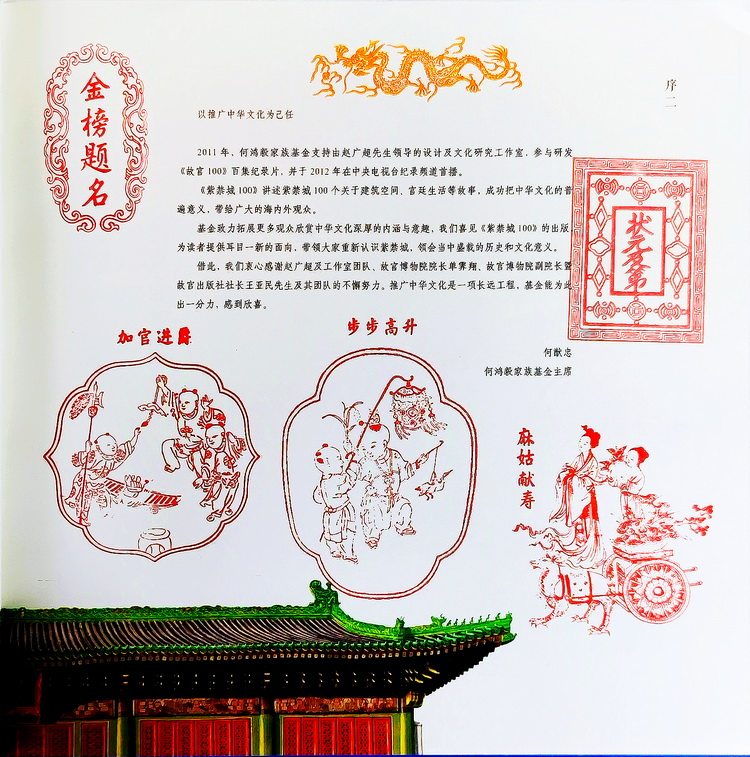 金榜题名
序二
以推广中华文化为己任
2011年，何鸿毅家族基金支持由赵广超先生领导的设计及文化研究工作室，参与研发
《故宫100》百集纪录片，并于2012年在中央电视台纪录频道首播。
《紫禁城100》讲述紫禁城100个关于建筑空间、宫廷生活等故事，成功把中华文化的普
遍意义，带给广大的海内外观众。
基金致力拓展更多观众欣赏中华文化深厚的内涵与意趣，我们喜见《紫禁城100》的出版，
为读者提供耳目一新的面向，带领大家重新认识紫禁城，领会当中盛载的历史和文化意义。
借此，我们衷心感谢赵广超及工作室团队、故宫博物院院长单霁翔、故宫博物院副院长暨
故宫出版社社长王亚民先生及其团队的不懈努力。推广中华文化是一项长远工程，基金能为此
出一分力，感到欣喜。
何猷忠
何鸿毅家族基金主席
状元及第
加官进爵
步步高升
麻姑献寿